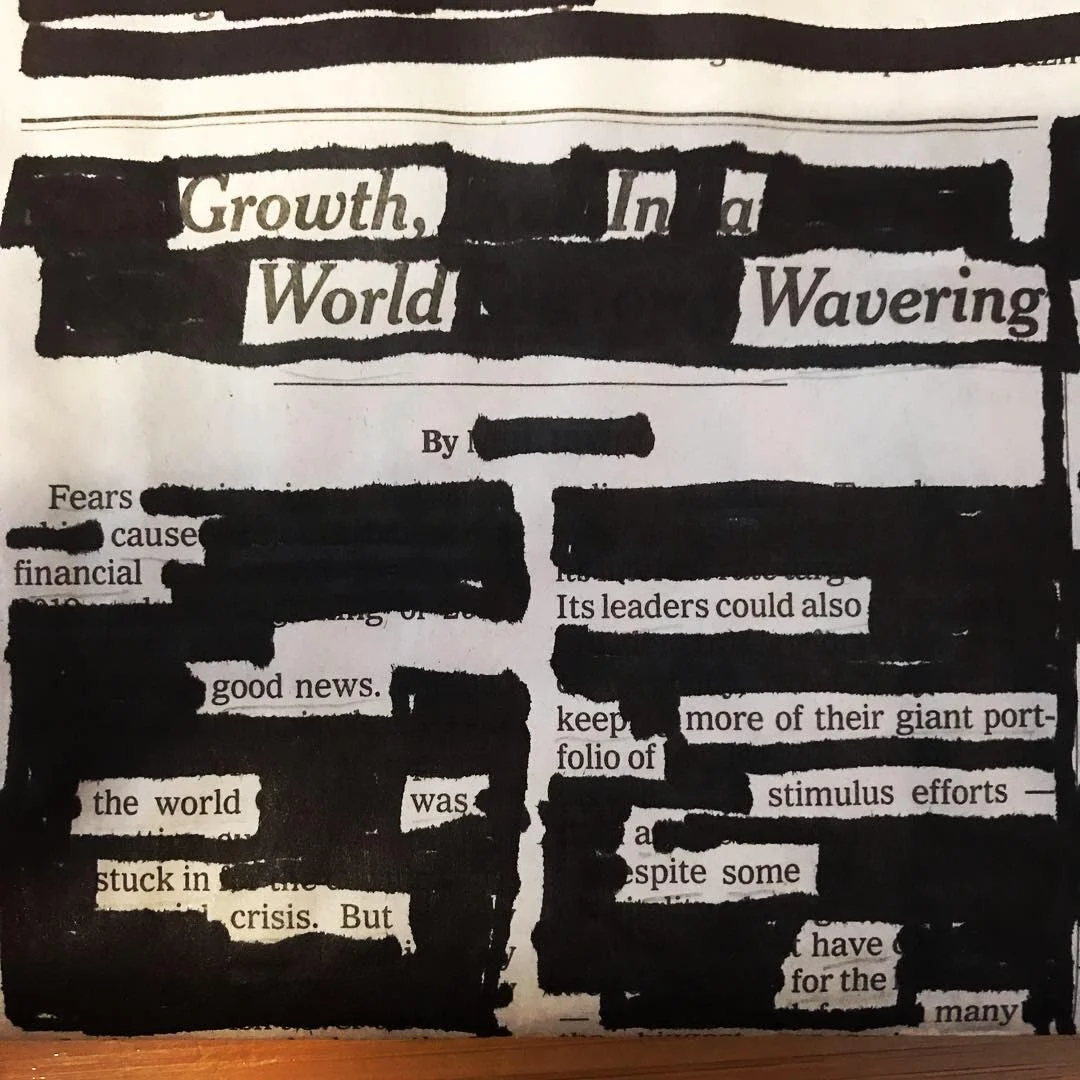 Growth, In a
World Wavering
By
Fears
cause
financial
good news.
the world was
stuck in
crisis. But
Its leaders could also
keep more of their giant port-
folio of
stimulus efforts —
a
espite some
have
for the
— many